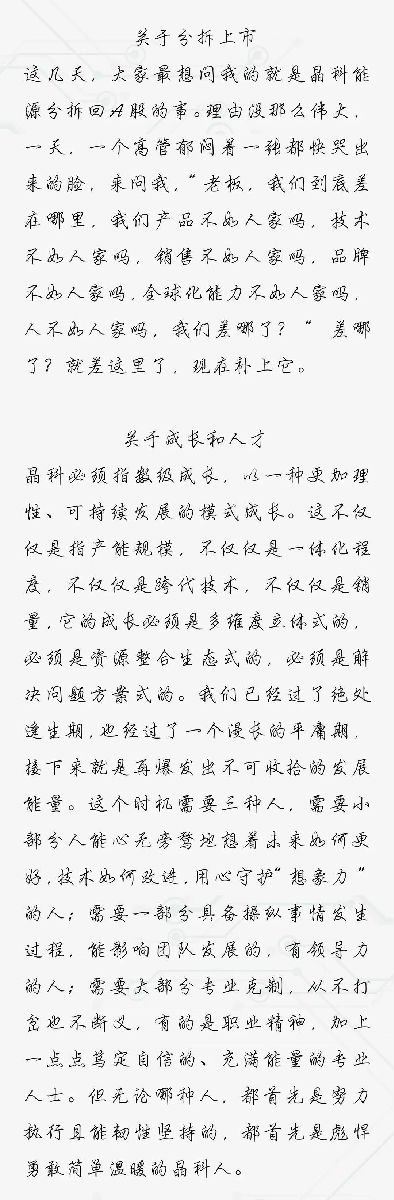 关于分拆上市
这几天，大家最想问我的就是晶科能
源分拆回A股的事。理由没那么伟大，
一天，一个高管郁闷着一张都快哭出
来的脸，来问我，“老板，我们到底差
在哪里，我们产品不如人家吗，技术
不如人家吗，销售不如人家吗，品牌
不如人家吗，全球化能力不如人家吗，
人不如人家吗，我们差哪了？” 差哪
了？就差这里了，现在补上它。
关于成长和人才
晶科必须指数级成长，以一种更加理
性、可持续发展的模式成长。这不仅
仅是指产能规模，不仅仅是一体化程
度，不仅仅是跨代技术，不仅仅是销
量，它的成长必须是多维度立体式的，
必须是资源整合生态式的，必须是解
决问题方案式的。我们已经过了绝处
逢生期，也经过了一个漫长的平庸期，
接下来就是再爆发出不可收拾的发展
能量。这个时机需要三种人，需要小
部分人能心无旁骛地想着未来如何更
好，技术如何改进，用心守护“想象力”
的人；需要一部分具备操纵事情发生
过程，能影响团队发展的，有领导力
的人；需要大部分专业克制，从不打
岔也不断义，有的是职业精神，加上
一点点笃定自信的、充满能量的专业
人士。但无论哪种人，都首先是努力
执行且能韧性坚持的，都首先是彪悍
勇敢简单温暖的晶科人。